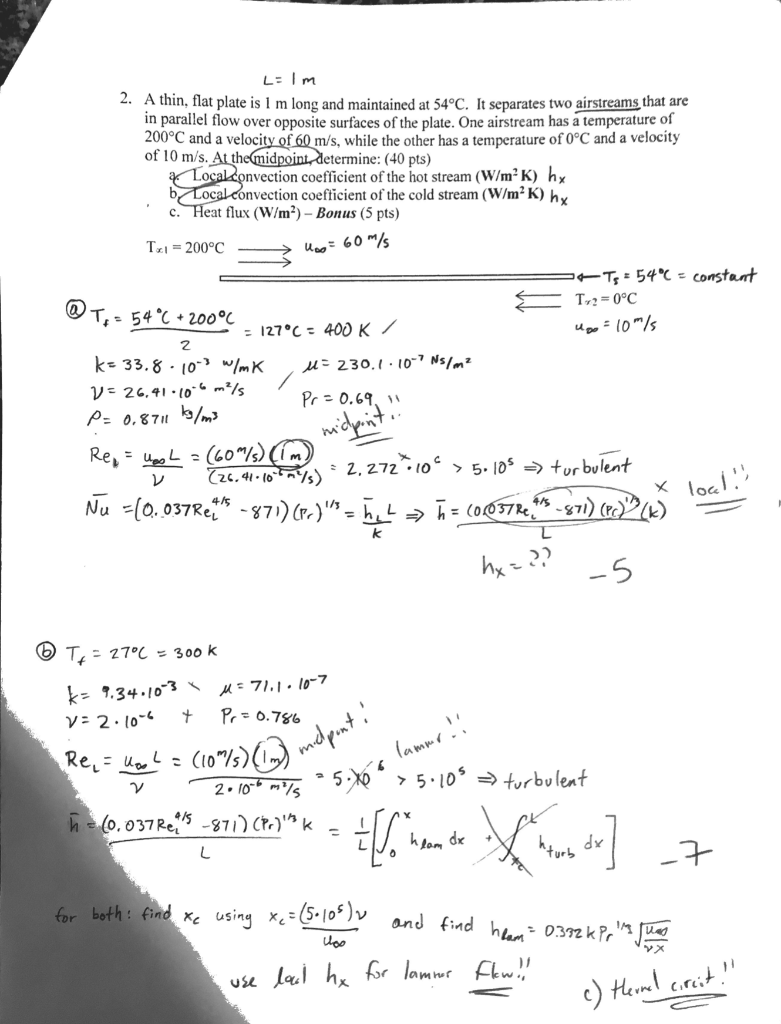 L= 1 m
2. A thin, flat plate is 1 m long and maintained at 54°C. It separates two airstreams that are
in parallel flow over opposite surfaces of the plate. One airstream has a temperature of
200°C and a velocity of 60 m/s, while the other has a temperature of 0°C and a velocity
of 10 m/s. At the midpoint, determine: (40 pts)
a. Local convection coefficient of the hot stream (W/m² K) hx
b. Local convection coefficient of the cold stream (W/m² K) hx
c. Heat flux (W/m²) – Bonus (5 pts)
T∞1 = 200°C u∞ = 60 m/s
Ts = 54°C = constant
T∞2 = 0°C
u∞ = 10 m/s
ⓐ Tf = (54°C + 200°C)/2 = 127°C = 400 K /
k = 33.8 · 10⁻³ W/mK μ = 230.1 · 10⁻⁷ Ns/m²
ν = 26.41 · 10⁻⁶ m²/s / Pr = 0.69
ρ = 0.8711 kg/m³ midpoint!!
ReL = u∞L/ν = (60 m/s)(1m)/(26.41·10⁻⁶ m²/s) = 2.272 · 10⁶ > 5·10⁵ ⇒ turbulent
N̄u = (0.037ReL^4/5 - 871)(Pr)^1/3 = h̄L L/k ⇒ h̄ = (0.037ReL^4/5 - 871)(Pr)^1/3 (k)/L x local!!
hx = ?? -5
ⓑ Tf = 27°C = 300 K
k = 9.34·10⁻³ \ μ = 71.1 · 10⁻⁷
ν = 2·10⁻⁶ + Pr = 0.786
midpoint! lamnr!!
ReL = u∞L/ν = (10 m/s)(1m)/(2·10⁻⁶ m²/s) = 5·10⁶ > 5·10⁵ ⇒ turbulent
h̄ = (0.037ReL^4/5 - 871)(Pr)^1/3 k/L = 1/L [∫₀ˣ hlam dx + ∫xc^L hturb dx] -7
for both: find xc using xc = (5·10⁵)ν/u∞ and find hlam = 0.332 k Pr^1/3 √(u∞/νx)
use local hx for lamnr flow!!
c) thermal circuit!!